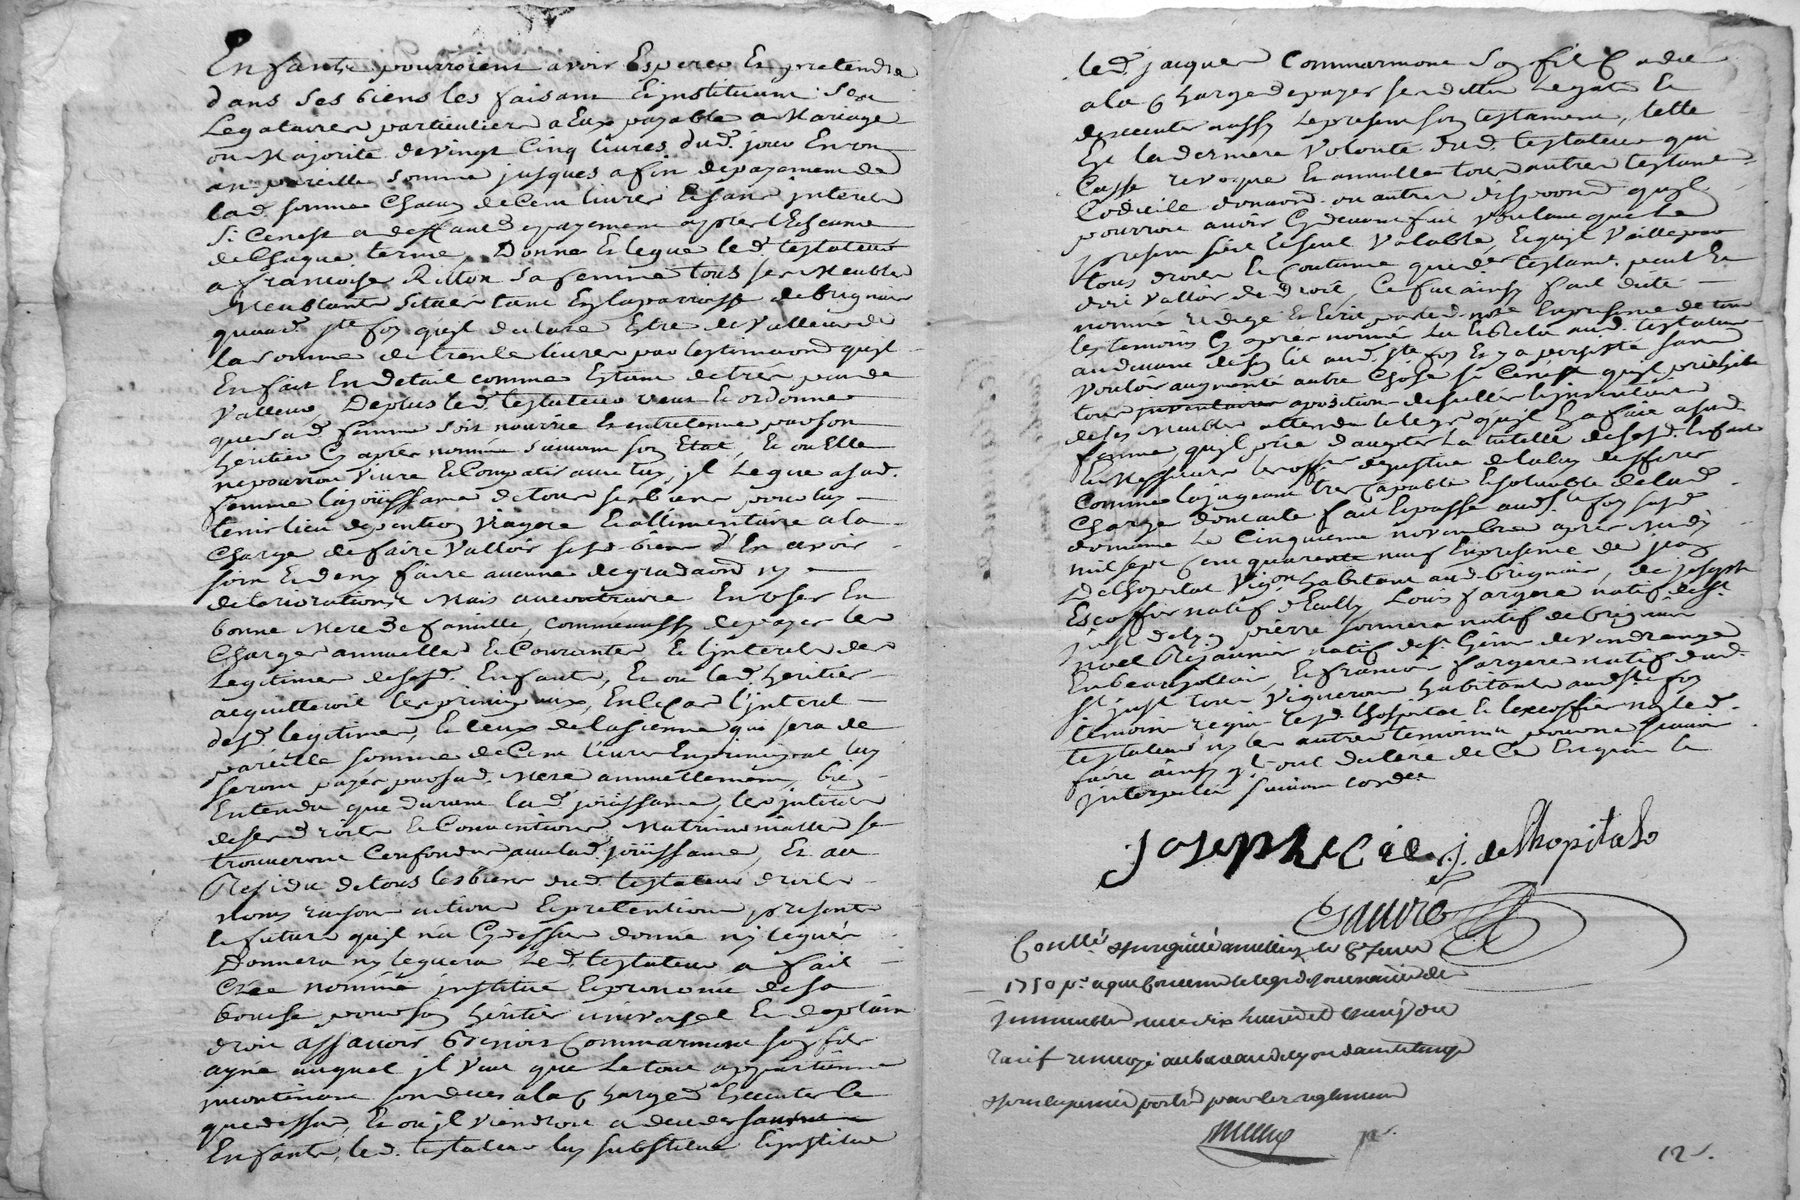 Enfants pourroient avoir Esperer Et pretendre
dans ses biens les faisant Et jnstituant ses
Legataires particuliers a Eux payable a Mariage
ou Majorité de vingt Cinq livres dud. jour En un
an pareille somme jusques a fin de payement de
lad. somme Chacun de Cent livres Et sans jnterets
Si Ce n'est a deffaut de payement apres l'Escheance
de Chaque terme, Donne Et legue led. testateur
a francoise Rillon sa femme tous ses Meubles
Meublants situés tant En la parroisse de brignais
quaud. Ste foy qu'il declare Estre de valleur de
la somme de trente livres par l'estimaond qu'il
En fait En detail comme Estant de tres peu de
valleur, De plus led. testateur veut Et ordonne
que sad. femme soit nourrie Et entretenue par son
heritier Cy apres nommé suivant son Etat, Et ou Elle
ne pourroit vivre Et Compatir avec luy, jl Legue a sad.
femme la joüissance de tous ses biens pour luy
tenir lieu de pention viagere Et allimentaire a la
Charge de faire valloir sesd. biens d'En avoir
soin Et d'en faire aucune degradaond ny
deteriorations Mais au contraire En User En
bonne Mere De famille, comme aussy de payer les
Charges annuelles Et Courantes Et l'jnterets des
Legitimes de sesd. Enfants, Et ou led. heritier
acquitteroit les principaux, En le Cas l'jnterest
desd. legitimes, Et Ceux de la sienne qui sera de
pareille somme de Cent livres En principal luy
seront payés par sad. Mere annuellement, bien
Entendu que durant lad. joüissance, les jnterets
de sesd. droits Et Conventions Matrimonialles se
trouveront Confondus avec lad. joüissance, Et au
Residu de tous les biens dud. testateur droits
noms raisons actions Et pretentions presents
Et futurs qu'il n'a Cy dessus donné ny legués
Donnera ny leguera Led. testateur a fait
Créé nommé jnstitué Et prononcé de sa
bouche pour son heritier universel Et de plein
droit assavoir Benoist Commarmont son fils
ayné auquel jl Veut que Le tout appartienne
jncontinent son deces a la Charge d'Executer le
que dessus, Et ou jl viendroit a deceder sans
Enfants, led. testateur luy substitue Et jnstitue
led. jacques Commarmont Son fils Cadet
a la Charge de payer sesdittes Legats Et
d'executer aussy Le present son testament, telle
Est la derniere Volonté dud. testateur qui
Casse revoque Et annulle tous autres testaments
Codicile donnaond ou autres dispoond qu'il
pourroit avoir Cy devant fait voulant que Le
present soit Le seul Valable, Et qu'il Vaille par
tous droits Et Coutume que des testamts. peut Et
doit valloir de Droit, Ce fut ainsy fait dicté
nommé redigé Et Ecrit par led. notre En presence de tous
les temoins Cy apres nommés Lu Et Relu aud. testateur
au devant de son lit aud. Ste foy Et y a persisté sans
vouloir augmenté autre Chose si Ce n'est qu'il prohibe
tous jnventaires aposition de scellés Et jnventaires
de ses Meubles attendu le legs qu'il En a fait a sad.
femme qu'il prie d'accepter La tutelle de sesd. Enfants
Et Messieurs les offrs de justice de la luy defferer
Comme la jugeant tres Capable Et solvable de lad.
Charge dont acte fait Et passé aud. Ste foy sesd.
domicile Le Cinquieme novembre apres Midy
mil sept Cent quarente neuf En presence de jean
Delhopital Vigon habitant aud. brignais, de joseph
Escoffier natif d'Ecully, Louis fargere natif de St.
just de lyon, pierre sonnera natif de brignais
noel Rejaunier natif de St. Genis de vendrange
En beaujollois, Et francois fargere natif dud.
St. just tous Vignerons habitants aud. Ste foy
temoins requis lesd. Lhopital Et Lescoffier non led.
testateur ny les autres temoins pour ne scavoir
faire ainsy qu'ils ont declaré de Ce Enquis Et
jnterpellés suivant lordce
joseph Leco j. delhopital
Gauvré
Conllé jnsinué a millery le 8e
1750 Rt.
jmmeubles
tarif renvoyé au bureau de lyon dans le temps
portés par les reglements
12 s.